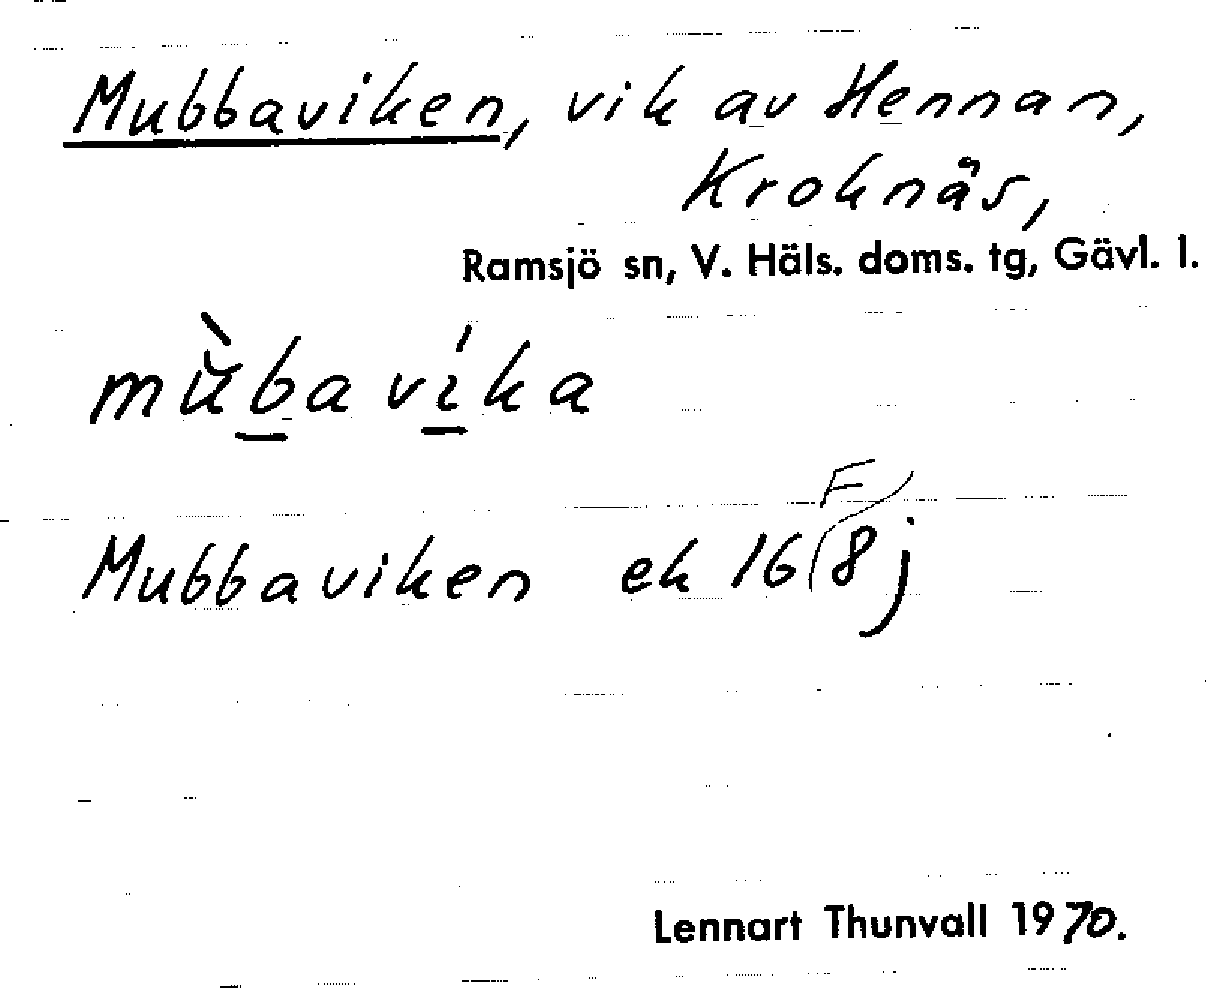 Mubbaviken, vik av Hennan,
Kroknäs,
Ramsjö sn, V. Häls. doms. tg, Gävl. l.
mùba víka
F
Mubbaviken ek 16(8j
Lennart Thunvall 1970.